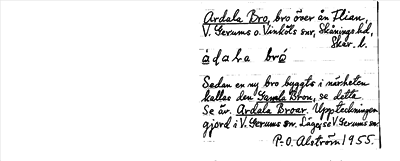 Ardala Bro, bro över ån Flian,
V. Gerums o. Vinköls snr, Skånings hd,
Skar. l.
àdala bró
Sedan en ny bro byggts i närheten
kallas den Gamla Bron, se detta.
Se äv. Ardala Broar. Uppteckningen
gjord i V. Gerums sn. Läge, se V. Gerums sn.
P.-O. Alström 1955.